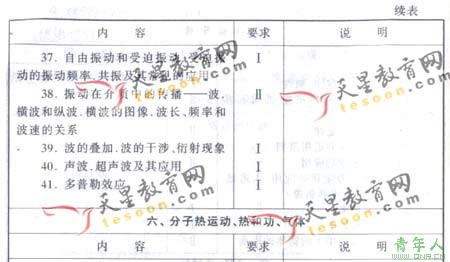 续表
内 容 要求 说 明
37. 自由振动和受迫振动,受迫振 Ⅰ
动的振动频率.共振及其常见的应用
38. 振动在介质中的传播——波. Ⅱ
横波和纵波.横波的图像.波长、频率和
波速的关系
39. 波的叠加.波的干涉、衍射现象 Ⅰ
40. 声波.超声波及其应用 Ⅰ
41. 多普勒效应 Ⅰ
六、分子热运动、热和功、气体
内 容 要求 说 明
天星教育网
tesoon.com
天星教育网
tesoon.com
天星教育网
tesoon.com
天星教育网
tesoon.com
青年人
WWW.QNR.CN